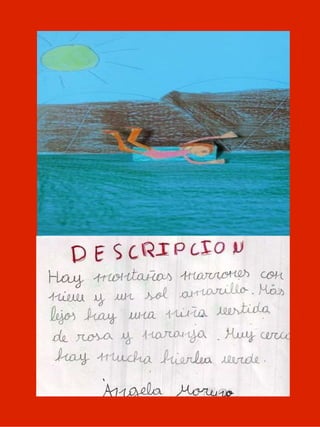 DESCRIPCION
Hay montañas marrones con
nieve y un sol amarillo. Más
lejos hay una niña vestida
de rosa y naranja. Muy cerca
hay mucha hierba verde.
Àngela Moreno